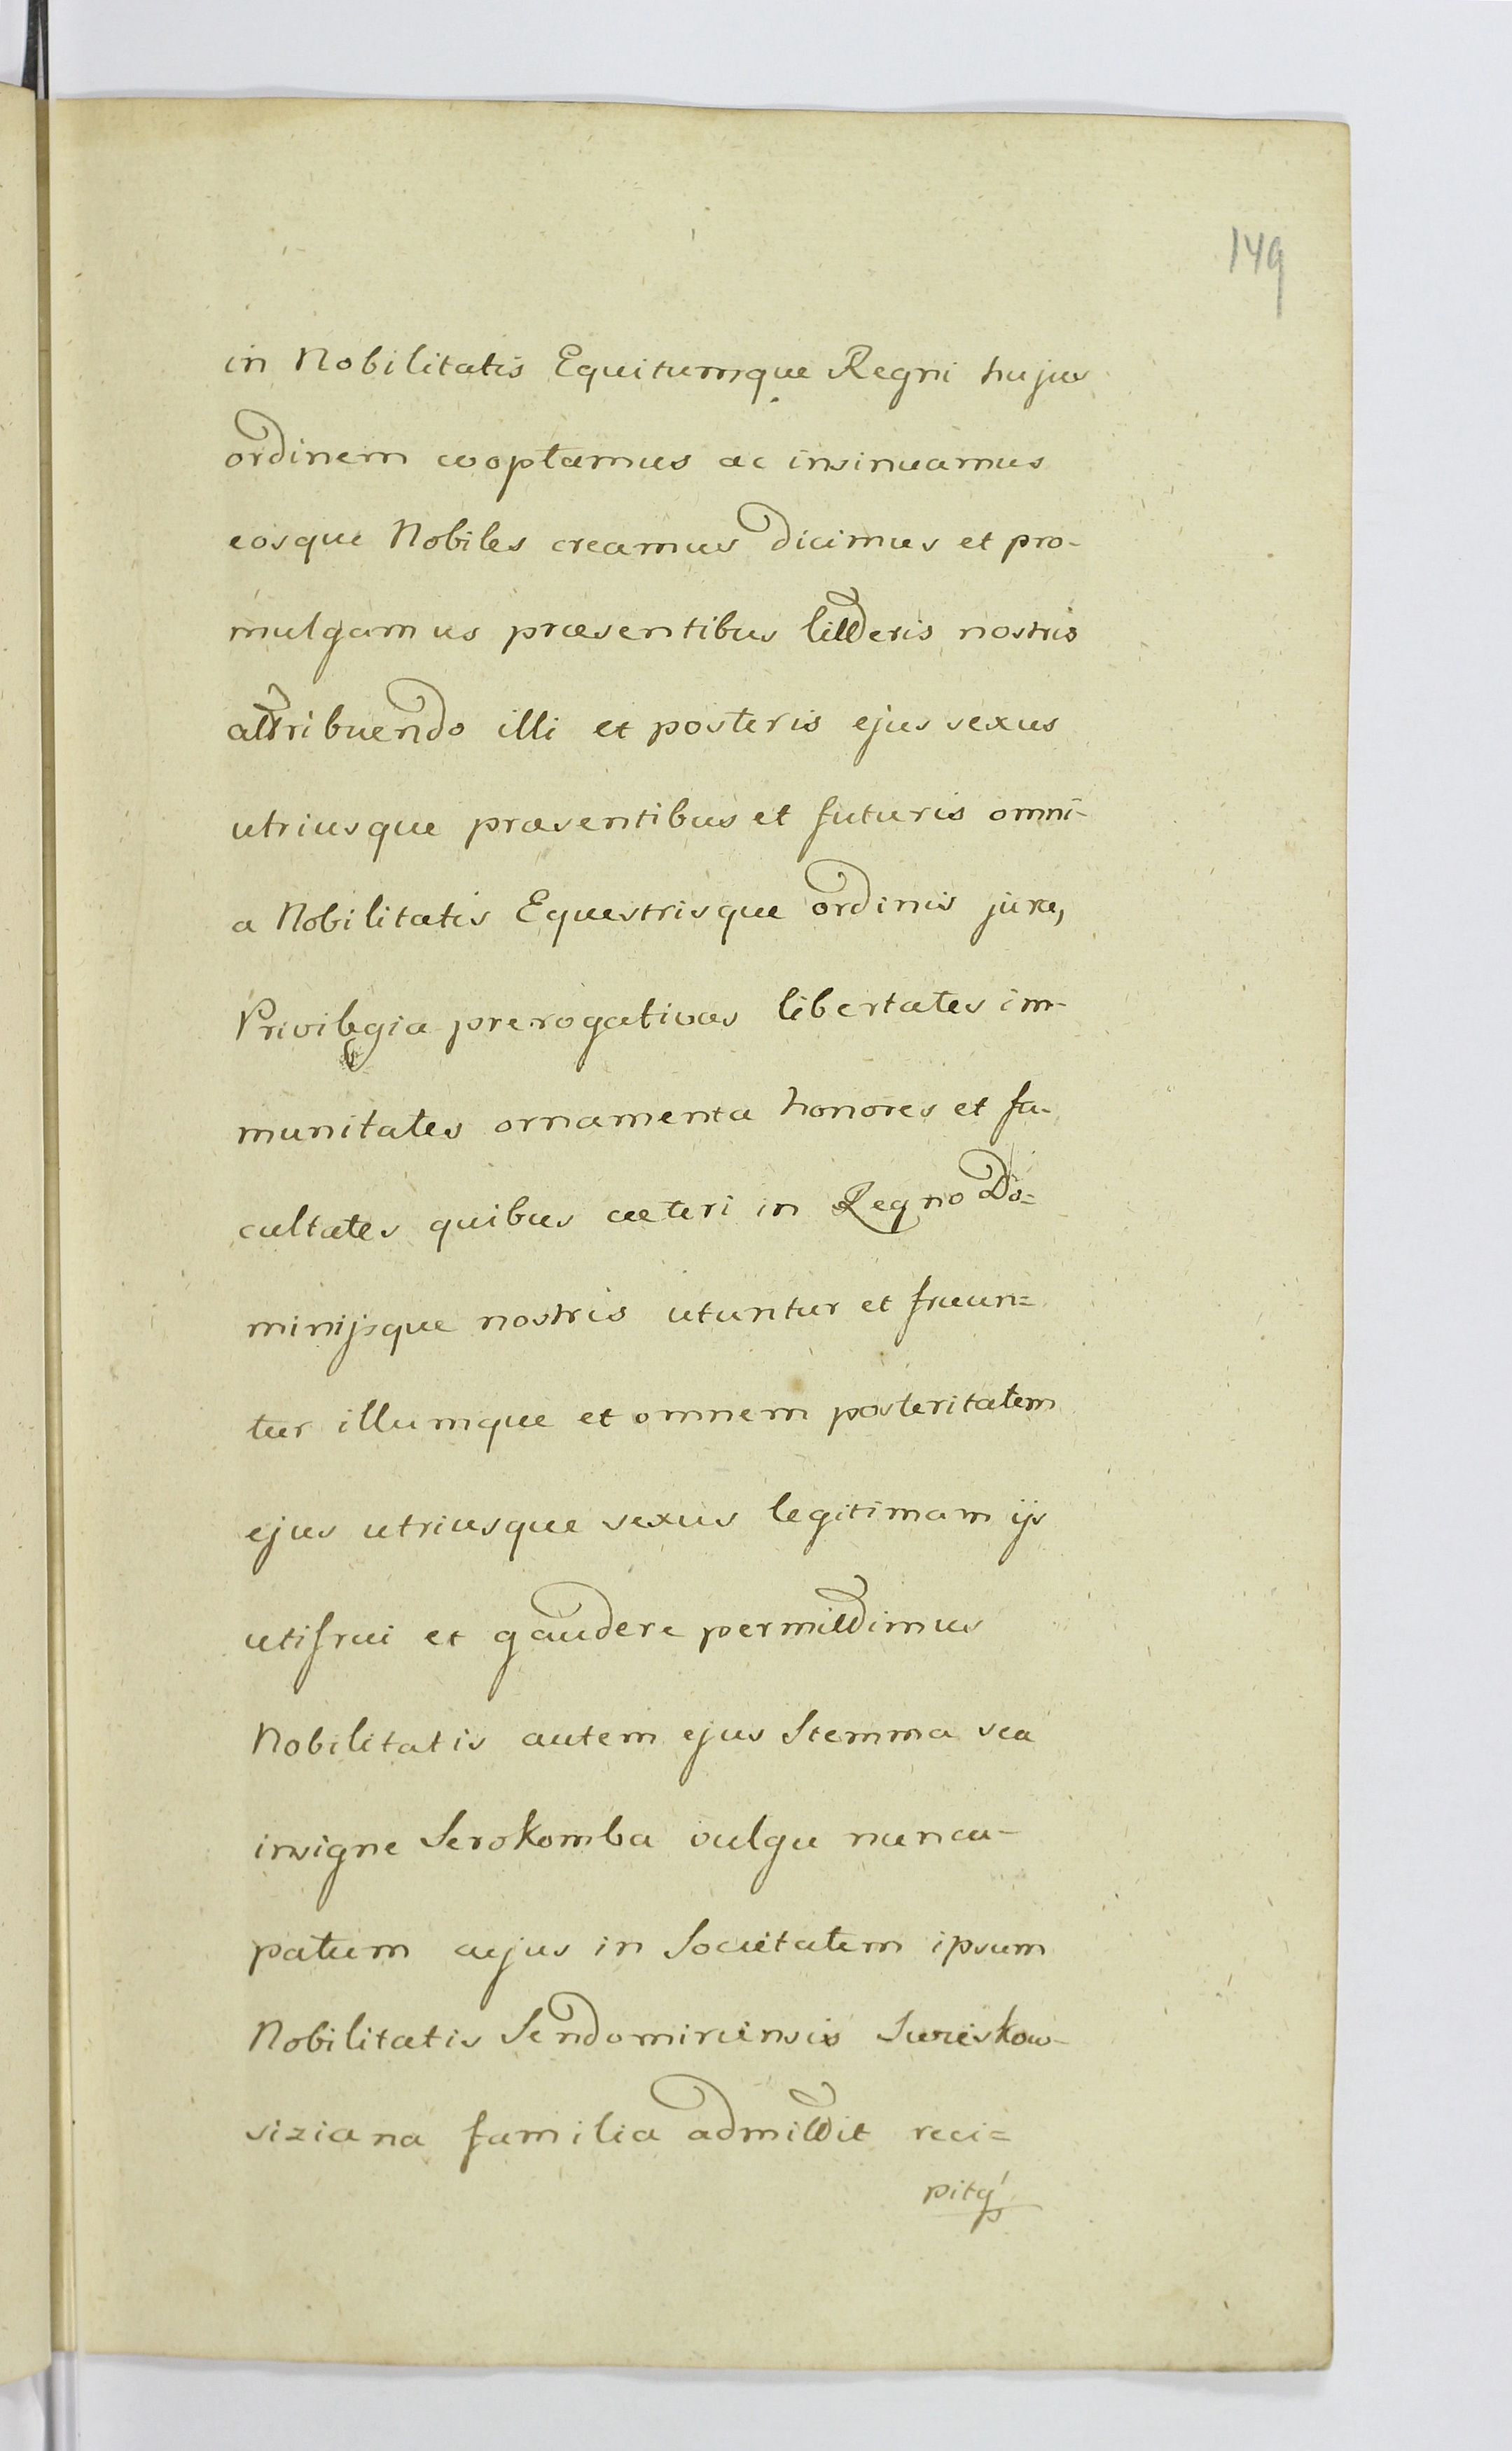 149
in Nobilitatis Equitumque Regni hujus
ordinem cooptamus ac insinuamus
eosque Nobiles creamus dicimus et pro-
mulgamus præsentibus litteris nostris
attribuendo illi et posteris ejus sexus
utriusque præsentibus et futuris omni-
a Nobilitatis Equestrisque ordinis jura,
Privilegia prerogativas libertates im-
munitates ornamenta honores et fa-
cultates quibus cæteri in Regno Do=
minijsque nostris utuntur et fruun=
tur illumque et omnem posteritatem
ejus utriusque sexus legitimam ijs
utifrui et gaudere permittimus
Nobilitatis autem ejus Stemma seu
insigne Serokomba vulgu nuncu-
patum cujus in Societatem ipsum
Nobilitatis Sendomiriensis
siziana familia admittit reci=
pitq́